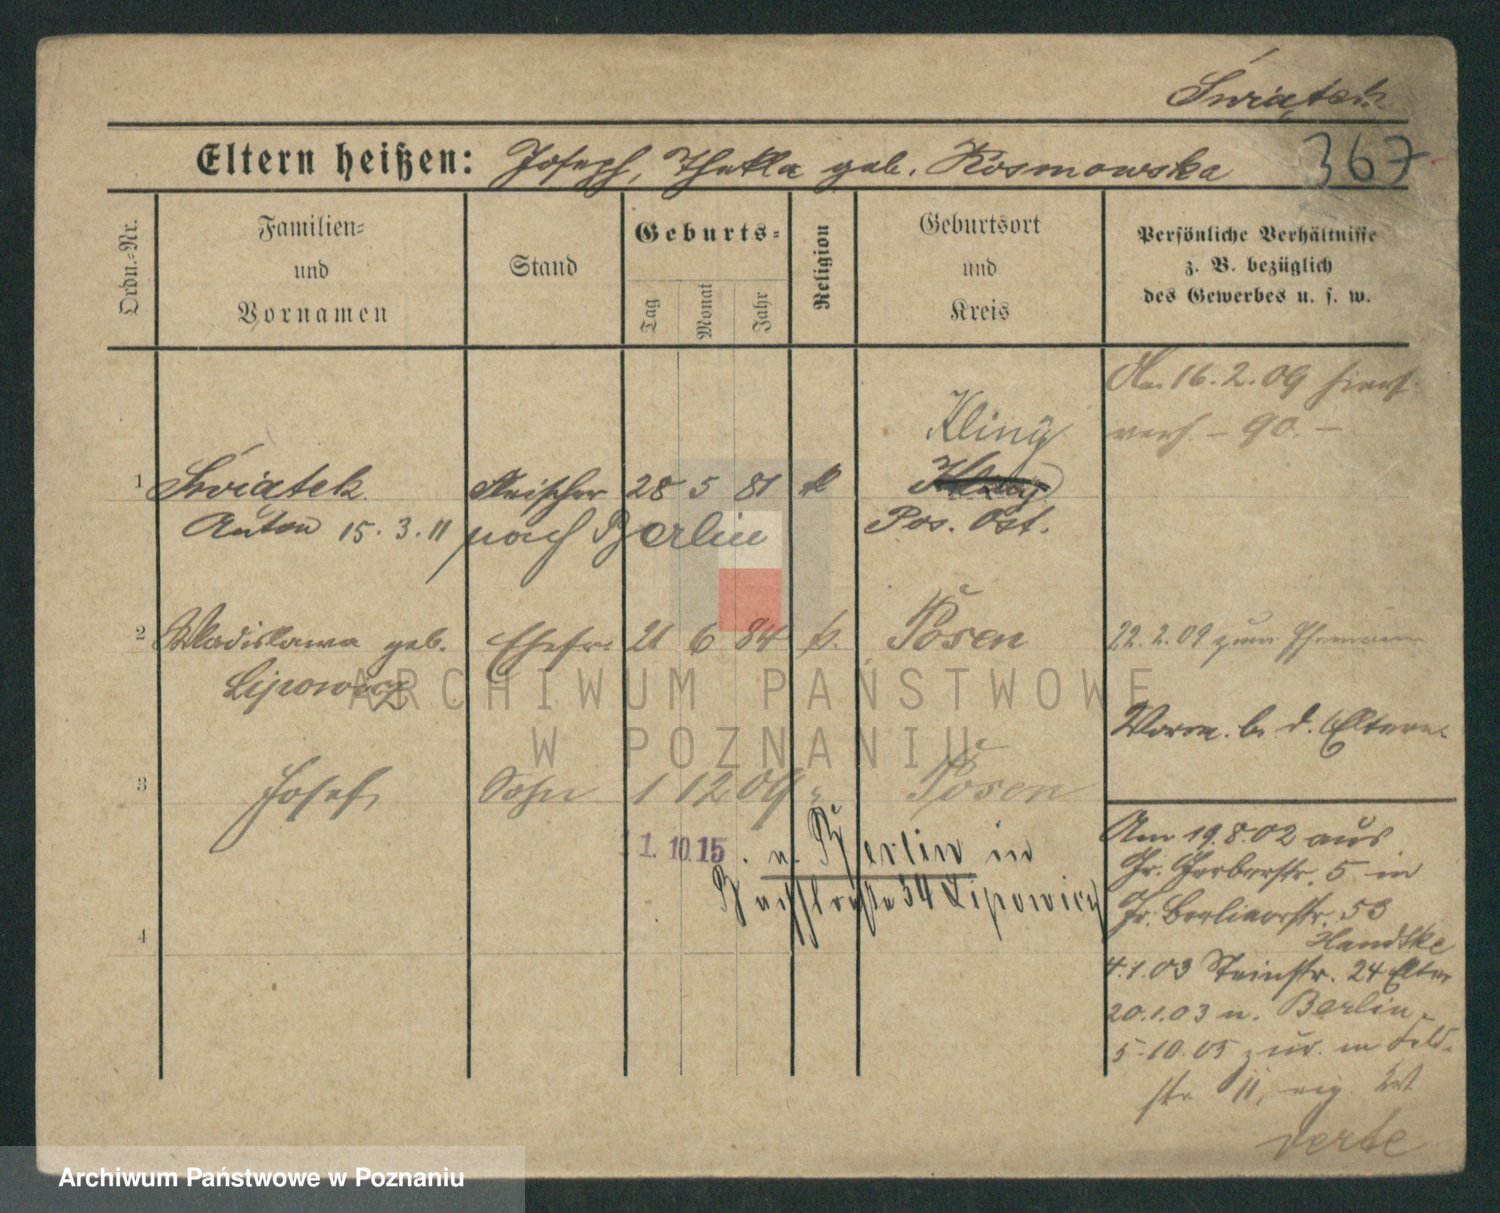 Świątek
Eltern heißen: Joseph, Thekla geb. Kosmowska
367
Ordn.-Nr.
Familien-
und
Vornamen
Stand
Geburts-
Tag
Monat
Jahr
Religion
Geburtsort
und
Kreis
Persönliche Verhältnisse
z. B. bezüglich
des Gewerbes u. s. w.
16.2.09
90. –
Kliny
1 Świątek Fleischer 28 5 81 k
Anton 15.3.11 nach Berlin
Pos. Ost.
2 Wladislawa geb. Ehefr. 21 6 84 k. Posen
Lipowicz
22.2.09 zum Ehemann
Vorm. b. d. Eltern
3 Josef, Sohn 1 12 09 " Posen
1.10.15 . n. Berlin in
34 Lipowicz
4
Am 19.8.02 aus
Gr. Gerberstr. 5 in
Gr. Berlinerstr. 53
Handtke
4.1.03 Steinstr. 24 Elter
20.1.03 n. Berlin
5.10.05 zur. in Feld-
str. 11, eig. Wt
verte
ARCHIWUM PAŃSTWOWE
W POZNANIU
Archiwum Państwowe w Poznaniu